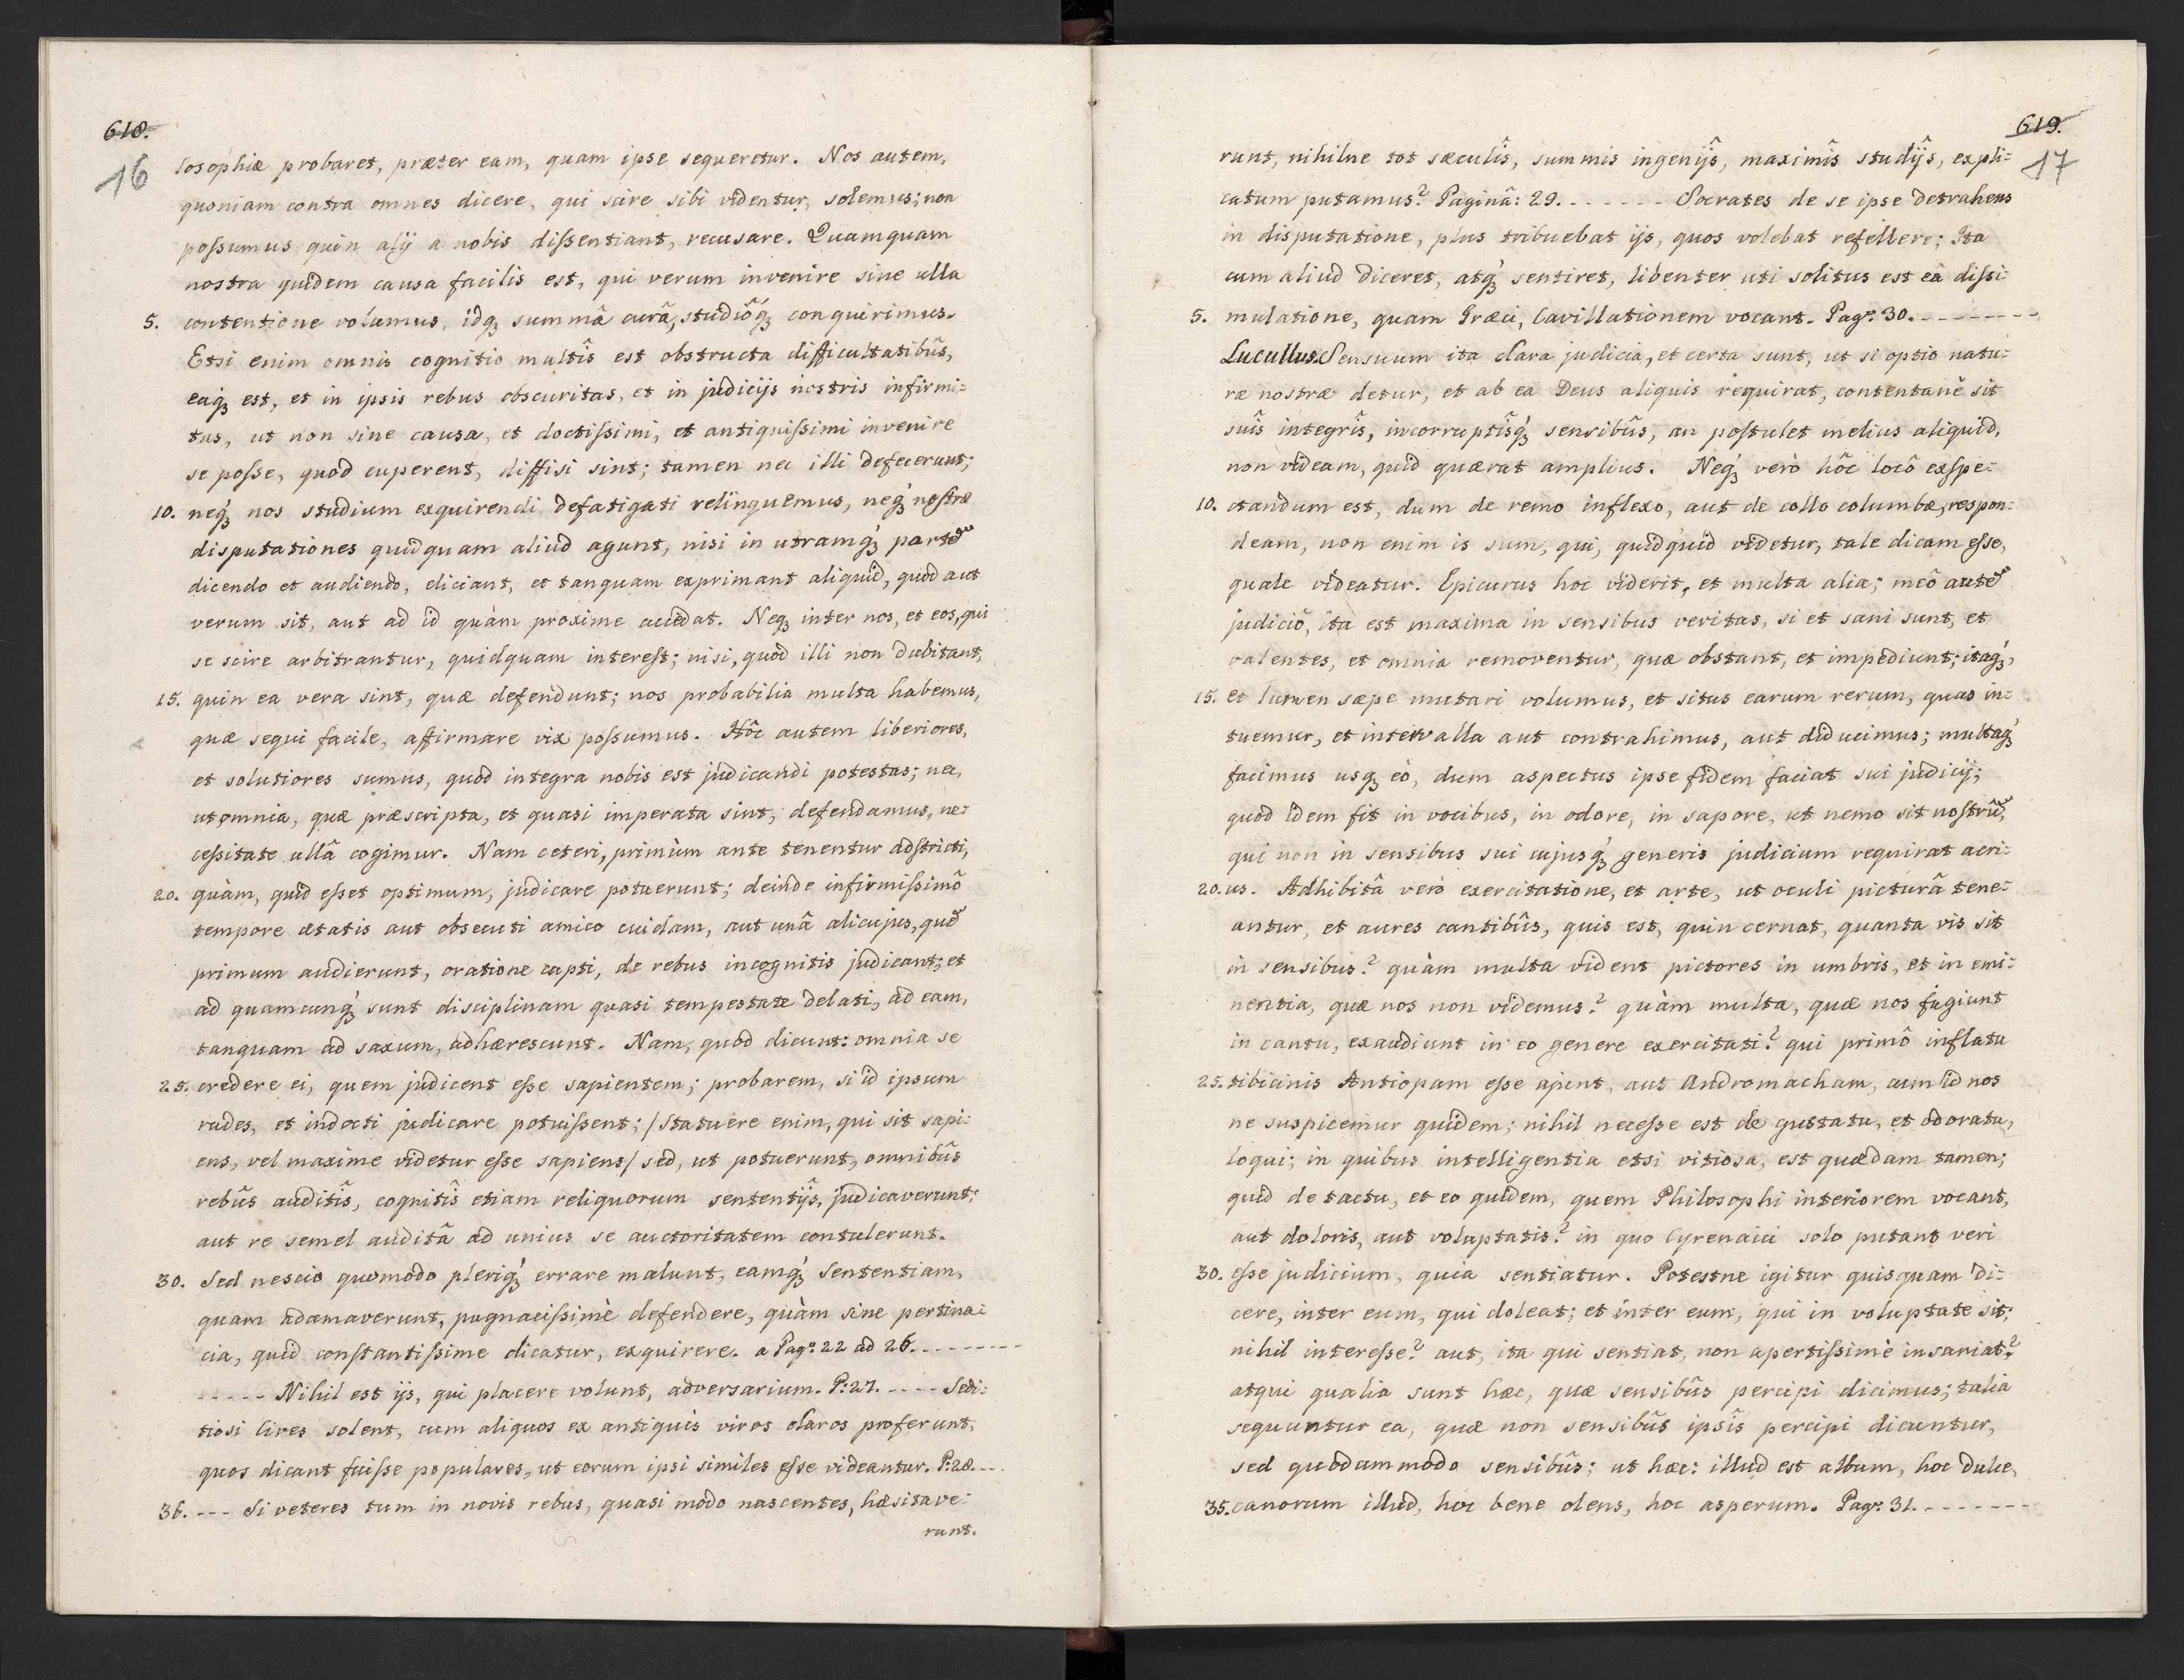 618.
16
losophiæ probaret, præter eam, quam ipse sequeretur. Nos autem,
quoniam contra omnes dicere, qui scire sibi videntur, solemus; non
poſsumus quin alÿ a nobis diſsentiant, recusare. Quamquam
nostra quidem causa facilis est, qui verum invenire sine ulla
5. contentione volumus, idq₃ summâ curâ, studiôq́₃ conquirimus.
Etsi enim omnis cognitio multîs est obstructa difficultatibûs,
eaq₃ est, et in ipsis rebus obscuritas, et in judicijs nostris infirmi=
tas, ut non sine causa, et doctiſsimi, et antiquiſsimi invenire
se poſse, quod cuperent, diffisi sint; tamen nec illi defecerunt;
10. neq́₃ nos studium exquirendi defatigati relinquemus, neq́₃ noſtræ
disputationes quidquam aliud agunt, nisi in utramq́₃ partē
dicendo et audiendo, eliciant, et tanquam exprimant aliquid, quod aut
verum sit, aut ad id quàm proxime accedat. Neq₃ inter nos, et eos, qui
se scire arbitrantur, quidquam intereſt; nisi, quod illi non dubitant,
15. quin ea vera sint, quæ defendunt; nos probabilia multa habemus,
quæ sequi facile, affirmare vix poſsumus. Hôc autem liberiores,
et solutiores sumus, quod integra nobis est judicandi potestas; nec,
ut omnia, quæ præscripta, et quasi imperata sint, defendamus, ne=
ceſsitate ullâ cogimur. Nam ceteri, primùm ante tenentur adſtricti,
20. quàm, quid eſset optimum, judicare potuerunt; deinde infirmiſsimô
tempore ætatis aut obsecuti amico cuidam, aut unâ alicujus, quē
primum audierunt, oratione capti, de rebus incognitis judicant; et
ad quamcunq́₃ sunt disciplinam quasi tempestate delati, ad eam,
tanquam ad saxum, adhærescunt. Nam, quod dicunt: omnia se
25. credere ei, quem judicent eſse sapientem; probarem, si id ipsum
rudes, et indocti judicare potuiſsent; /statuere enim, qui sit sapi=
ens, vel maxime videtur eſse sapiens/ sed, ut potuerunt, omnibûs
rebûs auditîs, cognitîs etiam reliquorum sententijs, judicaverunt;
aut re semel auditâ ad unius se auctoritatem contulerunt.
30. Sed nescio quomodo pleriq́₃ errare malunt, eamq́₃ sententiam,
quam adamaverunt, pugnaciſsimè defendere, quàm sine pertina=
cia, quid conſtantiſsime dicatur, exquirere. a Pag: 22 ad 26. --------
----- Nihil est ijs, qui placere volunt, adversarium. P: 27. ---- Sedi=
tiosi cives solent, cum aliquos ex antiquis viros claros proferunt,
quos dicant fuiſse populares, ut eorum ipsi similes eſse videantur. P: 28. ---
36. --- Si veteres tum in novis rebus, quasi modo nascentes, hæsitave=
runt.
619.
17
runt, nihilne tot sæculîs, summis ingenijs, maximîs studijs, expli=
catum putamus? Paginâ: 29. ------ Socrates de se ipse detrahens
in disputatione, plus tribuebat ijs, quos volebat refellere; Ita
cum aliud diceret, atq́₃ sentiret, libenter uti solitus est eâ diſsi=
5. mulatione, quam Græci, Cavillationem vocant. Pag: 30. --------
Lucullus. Sensuum ita clara judicia, et certa sunt, ut si optio natu=
ræ nostræ detur, et ab ea Deus aliquis requirat, contentanè sit
suîs integrîs, incorruptîsq́₃ sensibûs, an poſtulet melius aliquid,
non videam, quid quærat amplius. Neq́₃ verò hôc locô exſpe=
10. ctandum est, dum de remo inflexo, aut de collo columbæ, respon=
deam, non enim is sum, qui, quidquid videtur, tale dicam eſse,
quale videatur. Epicurus hoc viderit, et multa alia; meô autē
judiciô, ita est maxima in sensibus veritas, si et sani sunt, et
valentes, et omnia removentur, quæ obstant, et impediunt; itaq́₃,
15. et lumen sæpe mutari volumus, et situs earum rerum, quas in=
tuemur, et intervalla aut contrahimus, aut diducimus; multaq́₃
facimus usq₃ eò, dum aspectus ipse fidem faciat sui judicij;
quod idem fit in vocibus, in odore, in sapore, ut nemo sit noſtrū,
qui non in sensibus sui cujusq́₃ generis judicium requirat acri=
20. us. Adhibitâ verò exercitatione, et arte, ut oculi picturâ tene=
antur, et aures cantibûs, quis est, quin cernat, quanta vis sit
in sensibus? quàm multa vident pictores in umbris, et in emi=
nentia, quæ nos non videmus? quàm multa, quæ nos fugiunt
in cantu, exaudiunt in eo genere exercitati? qui primô inflatu
25. tibicinis Antiopam eſse ajunt, aut Andromacham, cum id nos
ne suspicemur quidem; nihil neceſse est de gustatu, et odoratu,
loqui; in quibus intelligentia etsi vitiosa, est quædam tamen;
quid de tactu, et eo quidem, quem Philosophi interiorem vocant,
aut doloris, aut voluptatis? in quo Cyrenaici solo putant veri
30. eſse judicium, quia sentiatur. Potestne igitur quisquam di=
cere, inter eum, qui doleat; et inter eum, qui in voluptate sit;
nihil intereſse? aut, ita qui sentiat, non apertiſsimè insaniat?
atqui qualia sunt hæc, quæ sensibûs percipi dicimus; talia
sequuntur ea, quæ non sensibûs ipsîs percipi dicuntur,
sed quodammodo sensibûs; ut hæc: illud est album, hoc dulce,
35. canorum illud, hoc bene olens, hoc asperum. Pag: 31. -------